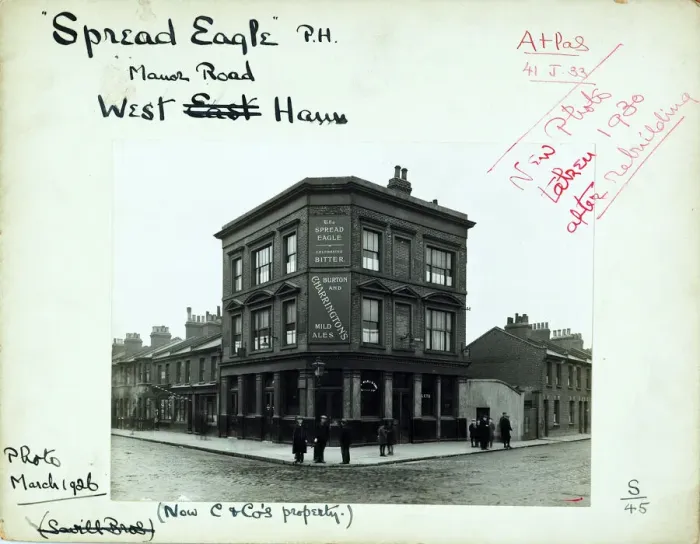 "Spread Eagle" P.H.
Manor Road
West East Ham
Atlas
41 J. 33
New Photo
taken 1930
after rebuilding
The
SPREAD
EAGLE
BITTER.
BURTON
AND
CHARRINGTON'S
MILD
ALES.
Photo
March 1926
(Savill Bros)
(Now C & Co's property.)
S
45